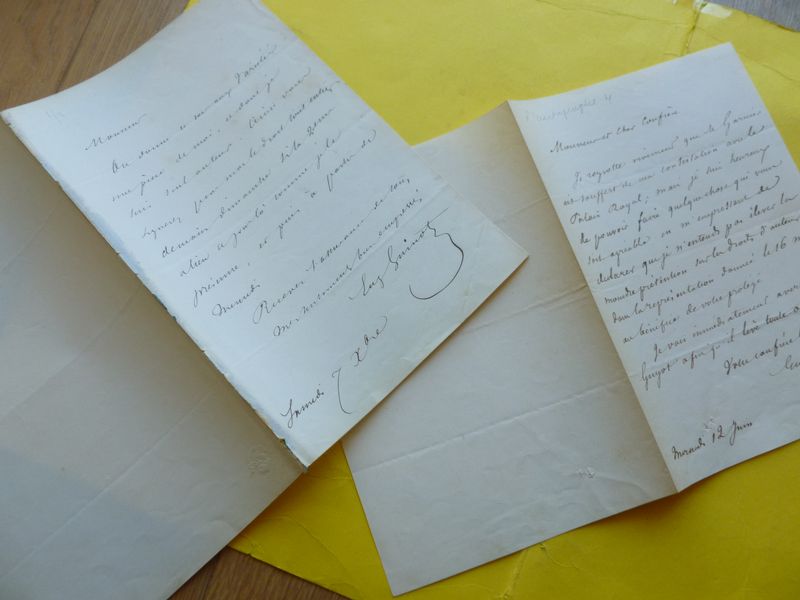 Monsieur
On donne ce soir aux Variétés
une pièce de moi, et dont je
suis seul auteur. Veuillez
signer pour moi le droit tout entier,
demain dimanche si la
a lieu ce jour là comme je le
présume, ou puis à partir de
Mercredi
Recevez l'assurance de tous
mes sentiments bien empressés,
Eug Guinot
Samedi 7 Xbre
Autographe 4
Monsieur et Cher Confrère
Je regrette vivement que le Gymnase
ait souffert de ma contestation avec le
Palais Royal; mais je suis heureux
de pouvoir faire quelque chose qui vous
soit agréable en m'empressant de
déclarer que je n'entends pas élever la
moindre prétention sur les droits d'auteur
dans la représentation donnée le 16 m
au bénéfice de votre protégé
Je vais immédiatement avertir
Guyot afin qu'il lève toute o
Votre confrère
Mercredi 12 Juin